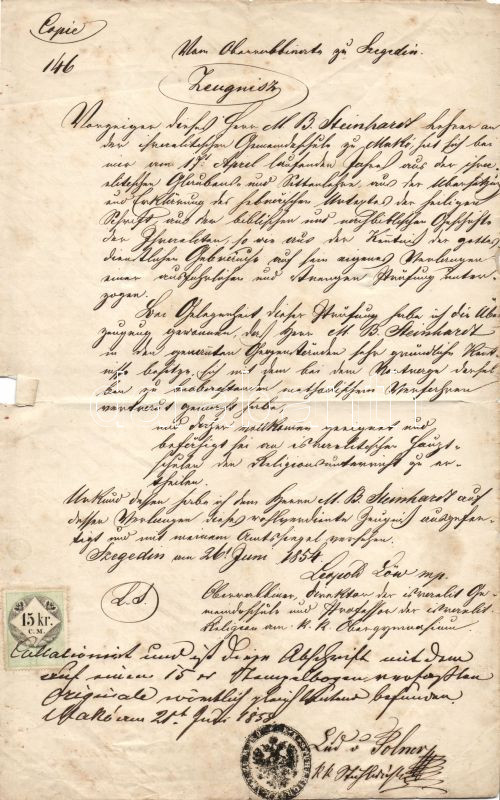 Copie
146
Vom Oberrabbinate zu Szegedin.
Zeugnisz
Vorzeiger dieses Herr M. B. Steinhardt, Lehrer an
der israelitischen Gemeindeschule zu Makó, hat sich bei
mir am 17t April laufenden Jahres aus der isra-
elitischen Glaubens- und Sittenlehre, aus der Übersetzung
und Erklärung des hebräischen Urtextes der heiligen
Schrift, aus der biblischen und nachbiblischen Geschichte
der Israeliten, so wie aus der der gottes-
dienstlichen Gebräuche auf sein eigenes Verlangen
einer ausführlichen und strengen Prüfung unter-
zogen.
Bei Gelegenheit dieser Prüfung habe ich die Über-
zeugung gewonnen, daß Herr M. B. Steinhardt
in den genannten Gegenständen sehr gründliche Kent-
niße besitze, sich mit dem bei dem Vortrage dersel-
ben zu beobachtenden methodischen Verfahren
vertraut gemacht habe,
und daher vollkommen geeignet und
befähigt sei an israelitischen Haupt-
schulen den Religionsunterricht zu er-
theilen.
Urkund dessen habe ich dem Herrn M. B. Steinhardt auf
dessen Verlangen dieses wohlverdiente Zeugniß ausgefer-
tigt und mit meinem Amtssiegel versehen.
Szegedin am 26t Juni 1854
Leopold Löw mp.
L.S.
Oberrabbiner, Direktor der israelit. Ge-
meindeschule und Professor der israelit.
Religion am k. k. Obergymnasium
15 kr.
C.M.
Collationirt und ist diese Abschrift mit dem
auf einem 15 xr Stempelbogen verfaßten
Originale wörtlich gleichlautend befunden.
Makó am 25t Juli 185
Lud v Polner
k k